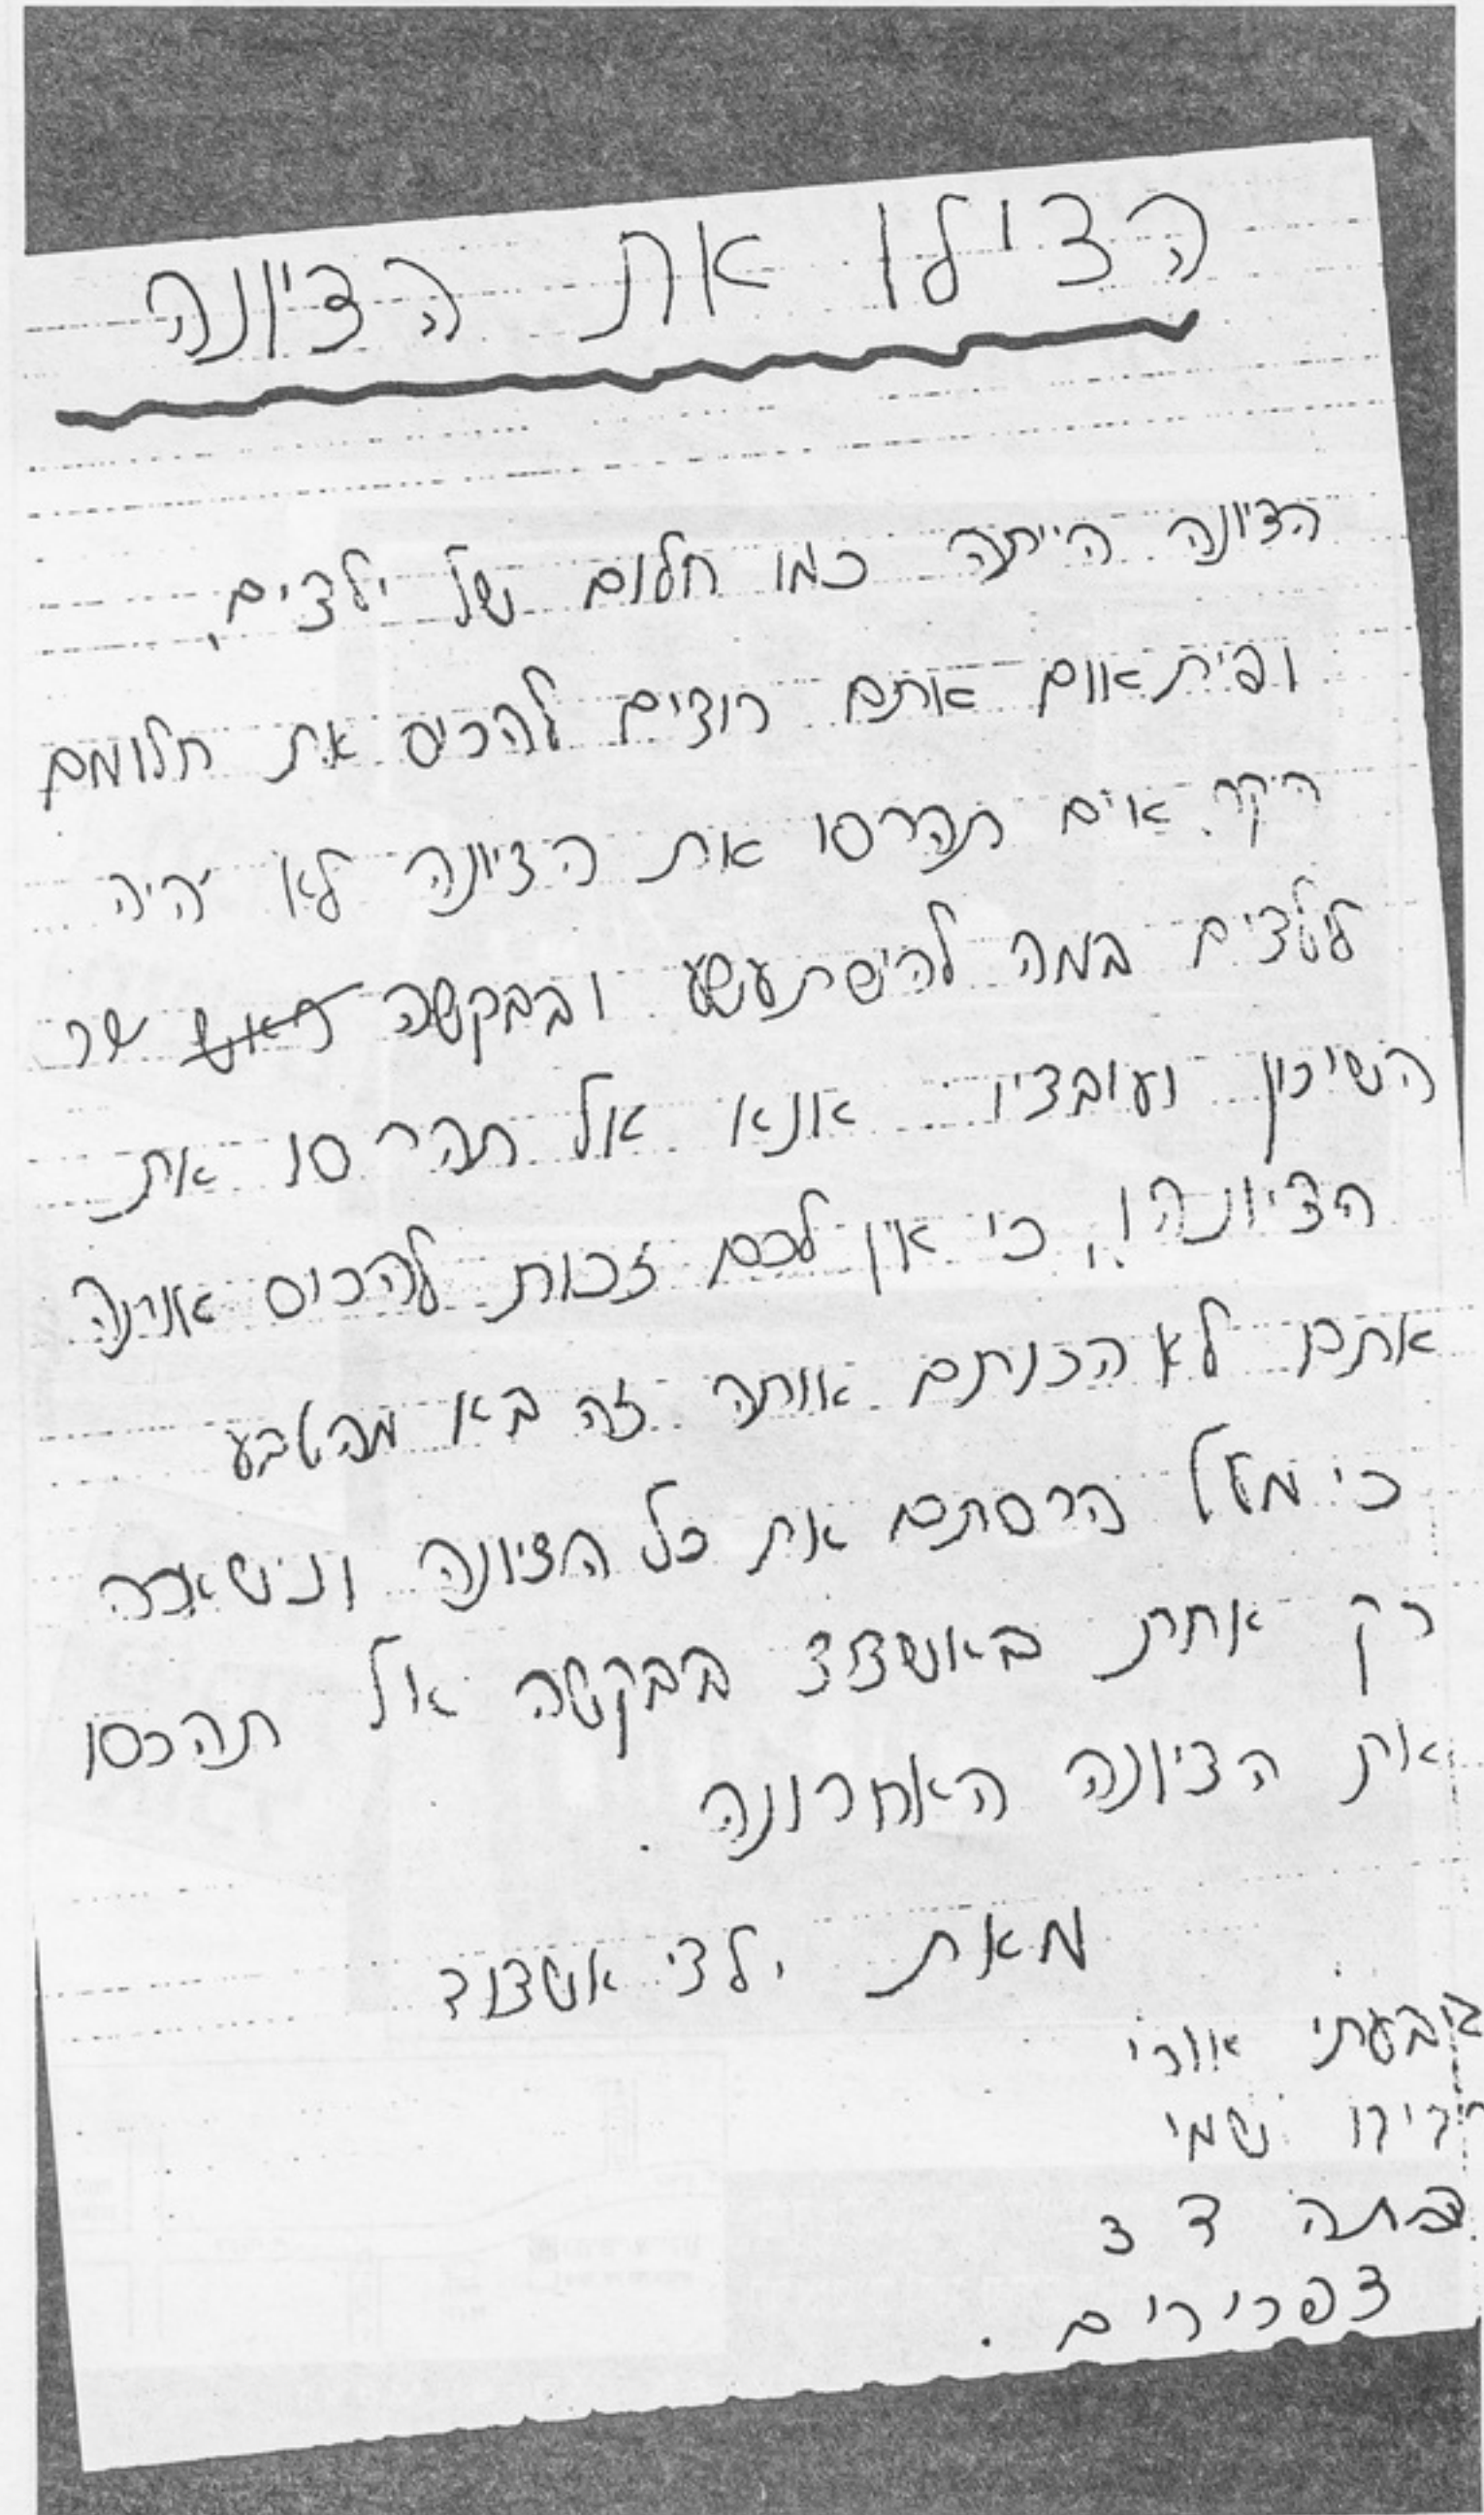 הצילו את הדיונה
הדיונה הייתה כמו חלום של ילדים,
ופיתאום אתם רוצים להרוס את חלומם
היקר. אים תהרסו את הדיונה לא יהיה
לילדים במה להישתעשע ובבקשה שר
השיכון ועובדיו אנא אל תהרסו את
הדיונה!, כי אין לכם זכות להרוס אותה
אתם לא הכנתם אותה זה בא מהטבע
כי הרסתם את כל הדיונה ונישארה
רק אחת באשדוד בבקשה אל תהרסו
את הדיונה האחרונה.
מאת ילדי אשדוד
גיבעתי אורי
שמי
כתה ד 3
צפרירים.